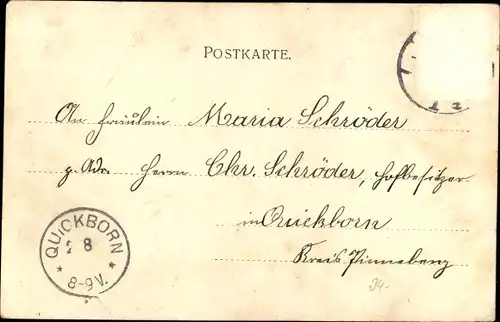 POSTKARTE.
An Fräulein Maria Schröder
p. Adr. Herrn Chr. Schröder, Hofbesitzer
in Quickborn
Kreis Pinneberg
QUICKBORN
8
* 8-9 V. *